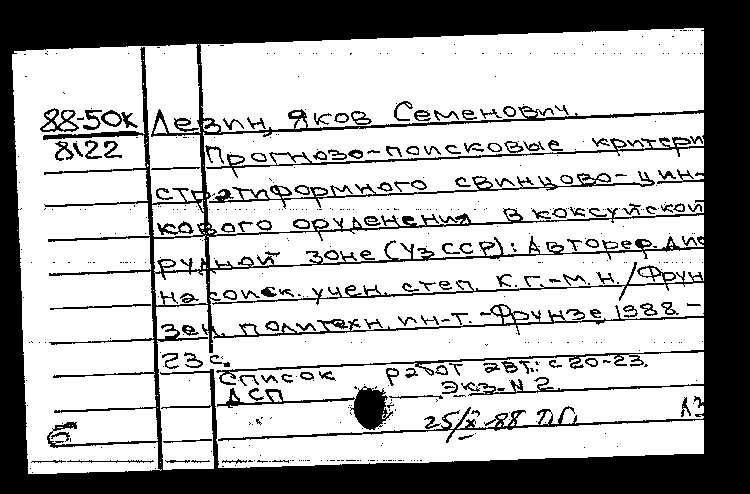 88-50к Левин, Яков Семенович.
8122 Прогнозо-поисковые критери
стратиформного свинцово-цин-
кового оруденения в коксуйской
рудной зоне (УзССР): Автореф. Дис
на соиск. учен. степ. к.г.-м.н. / Фрун
зен. политехн. ин-т. - Фрунзе, 1988. -
23 с.
Список работ авт.: с 20-23.
ДСП Экз. N 2.
25/X-88 П.П.
б